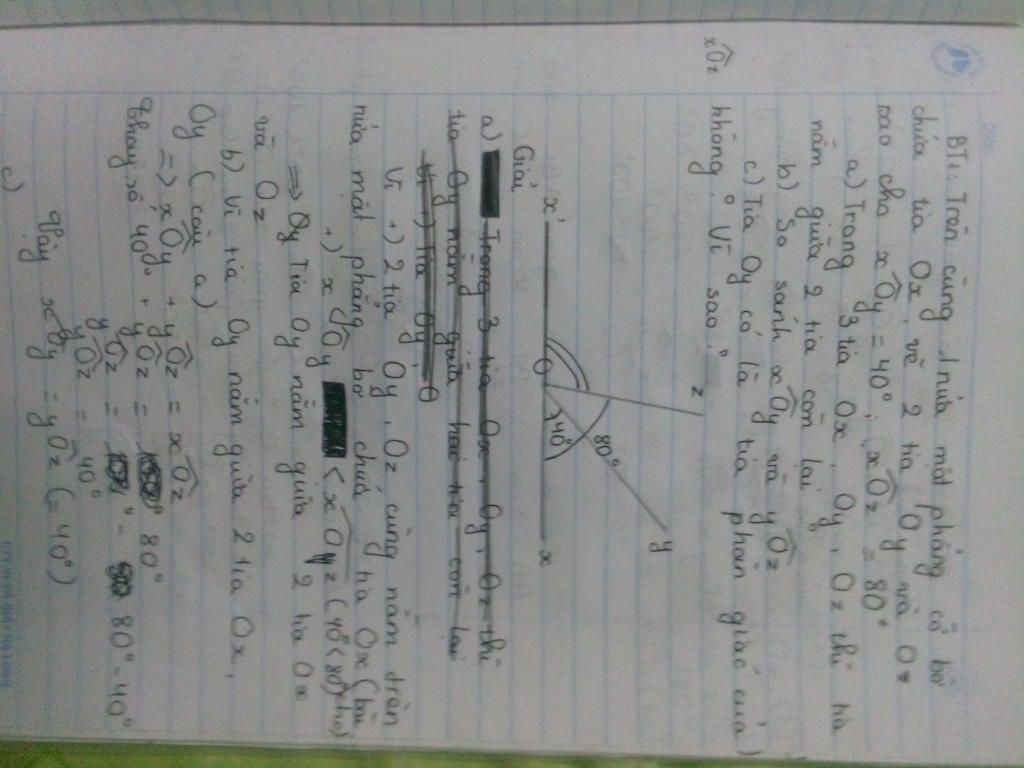 BT1: Trên cùng 1 nửa mặt phẳng có bờ
chứa tia Ox, vẽ 2 tia Oy và Oz
sao cho xOy = 40°; xOz = 80°
a) Trong 3 tia Ox, Oy, Oz thì tia
nằm giữa 2 tia còn lại
b) So sánh xOy và yOz
c) Tia Oy có là tia phân giác của
xOz
không? Vì sao?
z
y
80°
40°
x'
O
x
Giải
a) Trong 3 tia Ox, Oy, Oz thì
tia Oy nằm giữa hai tia còn lại
Vì +) Tia Oy,
Vì +) 2 tia Oy, Oz cùng nằm trên
nửa mặt phẳng bờ chứa tia Ox (bài
+) xOy < xOz (40° < 80°)
=> Oy Tia Oy nằm giữa 2 tia Ox
và Oz
b) Vì tia Oy nằm giữa 2 tia Ox,
Oy (câu a)
=> xOy + yOz = xOz
Thay số 40° + yOz = 80°
yOz = 80° = 40°
yOz = 40°
Vậy xOy = yOz (= 40°)
c)